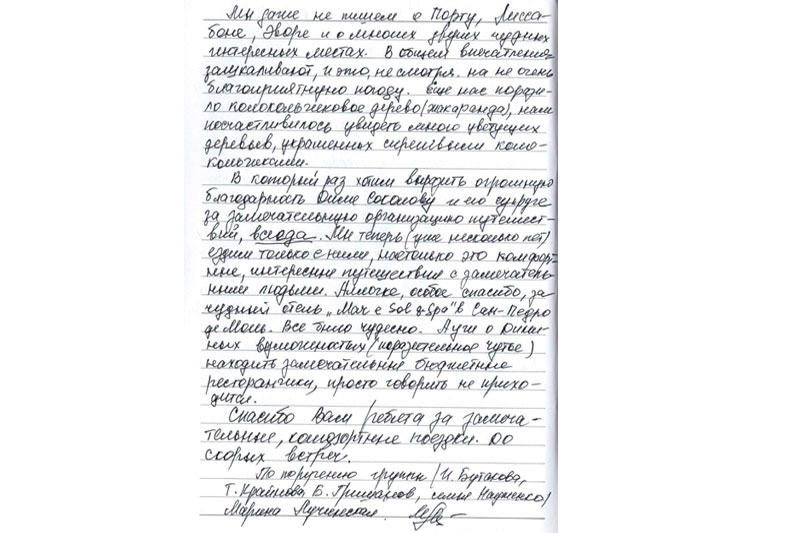 Мы даже не пишем о Порту, Лисса-
боне, Эворе и о многих других чудных
интересных местах. В общем впечатления
зашкаливают, и это, не смотря на не очень
благоприятную погоду. Еще нас порази-
ло колокольчиковое дерево (жакаранда), нам
посчастливилось увидеть много цветущих
деревьев, украшенных сиреневыми коло-
кольчиками.
В который раз хотим выразить огромную
благодарность Диме Соколову и его супруге
за замечательную организацию путешест-
вий, всегда. Мы теперь (уже несколько лет)
ездим только с ними, настолько это комфорт-
ные, интересные путешествия с замечатель-
ными людьми. Аллочке, особое спасибо, за
чудный отель „Mar e Sol & Spa" в Сан-Педро
де Моель. Все было чудесно. А уж о Дими-
ных возможностях (поразительное чутье)
находить замечательные бюджетные
ресторанчики, просто говорить не прихо-
дится.
Спасибо Вам ребята за замеча-
тельные, комфортные поездки. До
скорых встреч.
По поручению группы (И. Бутакова,
Т. Крайнова Б. семья
Марина